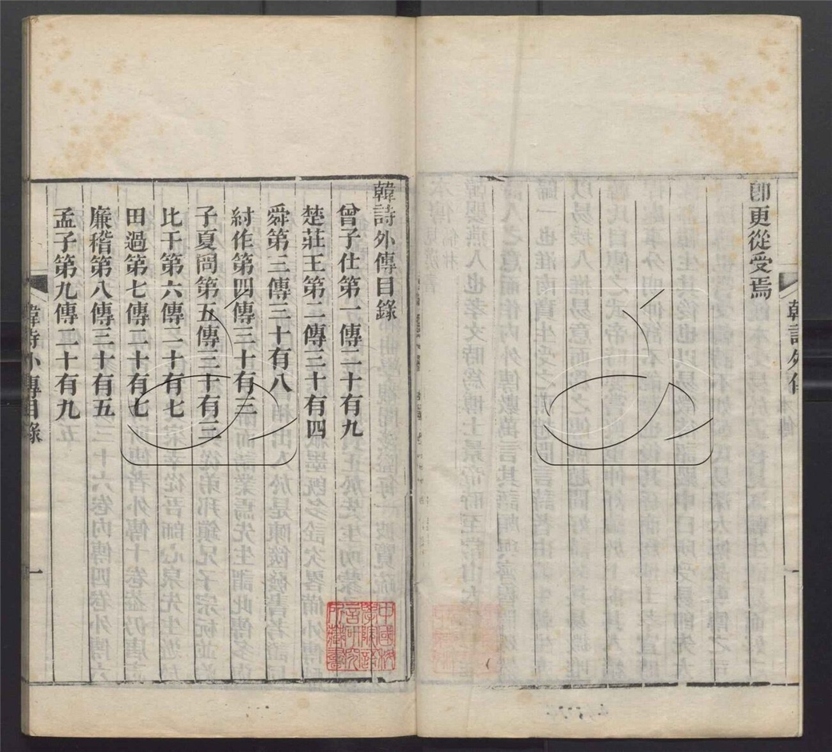 即更從受焉
韓詩外傳目錄
曾子仕第一傳二十有九
楚莊王第二傳三十有四
舜第三傳三十有八
紂作第四傳三十有三
子夏問第五傳三十有三
比干第六傳二十有七
田過第七傳二十有七
廉稽第八傳三十有五
孟子第九傳二十有九
韓詩外傳目錄
一